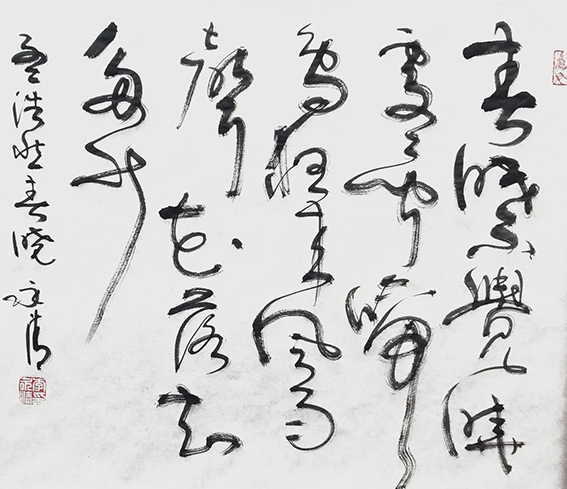 春眠不覺曉
處々聞啼
鳥夜来風雨
聲花落知
多少
孟浩然春晓